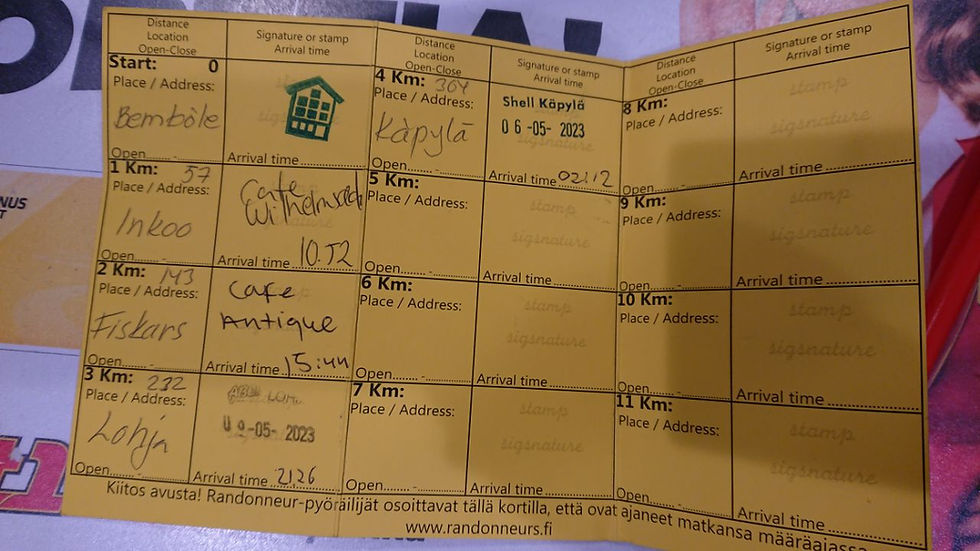 Distance
Location
Open-Close
Signature or stamp
Arrival time
Start: 0
Place / Address:
Bembôle
Open........ -........
Arrival time
1 Km: 57
Place / Address:
Inkoo
Open........ -........
Cafe
Arrival time 10.52
2 Km: 143
Place / Address:
Fiskars
Open........ -........
Cafe
Antique
Arrival time 15:44
3 Km: 232
Place / Address:
Lohja
Open........ -........
-05- 2023
Arrival time 2126
Distance
Location
Open-Close
Signature or stamp
Arrival time
4 Km: 304
Place / Address:
Käpylä
Open........ -........
Shell Käpylä
06-05-2023
sigsnature
Arrival time 02:12
5 Km:
Place / Address:
Open........ -........
stamp
sigsnature
Arrival time
6 Km:
Place / Address:
Open........ -........
stamp
sigsnature
Arrival time
7 Km:
Place / Address:
Open........ -........
stamp
sigsnature
Arrival time
Distance
Location
Open-Close
Signature or stamp
Arrival time
8 Km:
Place / Address:
Open........ -........
stamp
sigsnature
Arrival time
9 Km:
Place / Address:
Open........ -........
stamp
sigsnature
Arrival time
10 Km:
Place / Address:
Open........ -........
stamp
sigsnature
Arrival time
11 Km:
Place / Address:
Open........ -........
stamp
sigsnature
Arrival time
Kiitos avusta! Randonneur-pyöräilijät osoittavat tällä kortilla, että ovat ajaneet matkansa määräajassa
www.randonneurs.fi